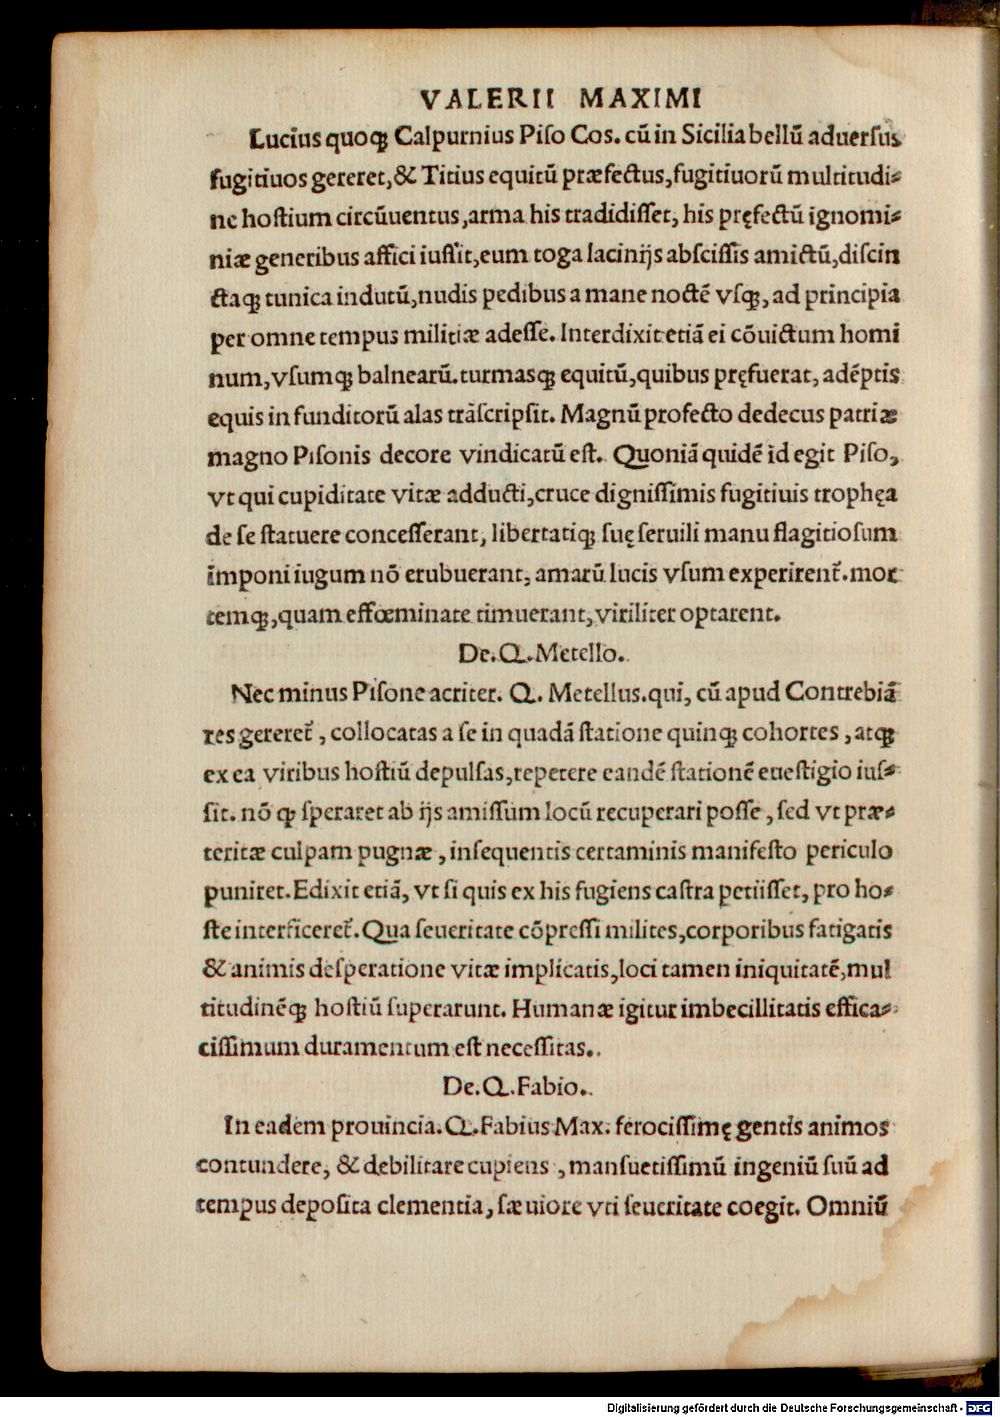 VALERII MAXIMI
Lucius quoqꝫ Calpurnius Piſo Cos. cū in Sicilia bellū aduerſus
fugitiuos gereret,& Titius equitū præfectus,fugitiuorū multitudi⸗
ne hoſtium circūuentus,arma his tradidiſſet, his pręfectū ignomi⸗
niæ generibus affici iuſſit,eum toga lacinijs abſciſſis amictū,diſcin
ctaqꝫ tunica indutū,nudis pedibus a mane noctē vſqꝫ, ad principia
per omne tempus militiæ adeſſe. Interdixit etiā ei cōuictum homi
num,vſumqꝫ balnearū.turmasqꝫ equitū,quibus pręfuerat, adēptis
equis in funditorū alas trāſcripſit. Magnū profecto dedecus patriæ
magno Piſonis decore vindicatū eſt. Quoniā quidē id egit Piſo,
vt qui cupiditate vitæ adducti,cruce digniſſimis fugitiuis trophęa
de ſe ſtatuere conceſſerant, libertatiqꝫ ſuę ſeruili manu flagitioſum
imponi iugum nō erubuerant, amarū lucis vſum experirent̃.mor
temqꝫ,quam effœminate timuerant,viriliter optarent.
De.Q.Metello.
Nec minus Piſone acriter. Q. Metellus.qui, cū apud Contrebiā
res gereret̃, collocatas a ſe in quadā ſtatione quinqꝫ cohortes, atqꝫ
ex ea viribus hoſtiū depulſas,repetere eandē ſtationē eueſtigio iuſ⸗
ſit. nō ꝙ ſperaret ab ijs amiſſum locū recuperari poſſe, ſed vt præ⸗
teritæ culpam pugnæ, inſequentis certaminis manifeſto periculo
puniret.Edixit etiā, vt ſi quis ex his fugiens caſtra petiiſſet, pro ho⸗
ſte interficeret̃.Qua ſeueritate cōpreſſi milites,corporibus fatigatis
& animis deſperatione vitæ implicatis,loci tamen iniquitatē,mul
titudinēqꝫ hoſtiū ſuperarunt. Humanæ igitur imbecillitatis effica⸗
ciſſimum duramentum eſt neceſſitas.
De.Q.Fabio.
In eadem prouincia.Q.Fabius Max. ferociſſimę gentis animos
contundere, & debilitare cupiens, manſuetiſſimū ingeniū ſuū ad
tempus depoſita clementia, ſæuiore vti ſeueritate coegit. Omniū
Digitalisierung gefördert durch die Deutsche Forschungsgemeinschaft - DFG